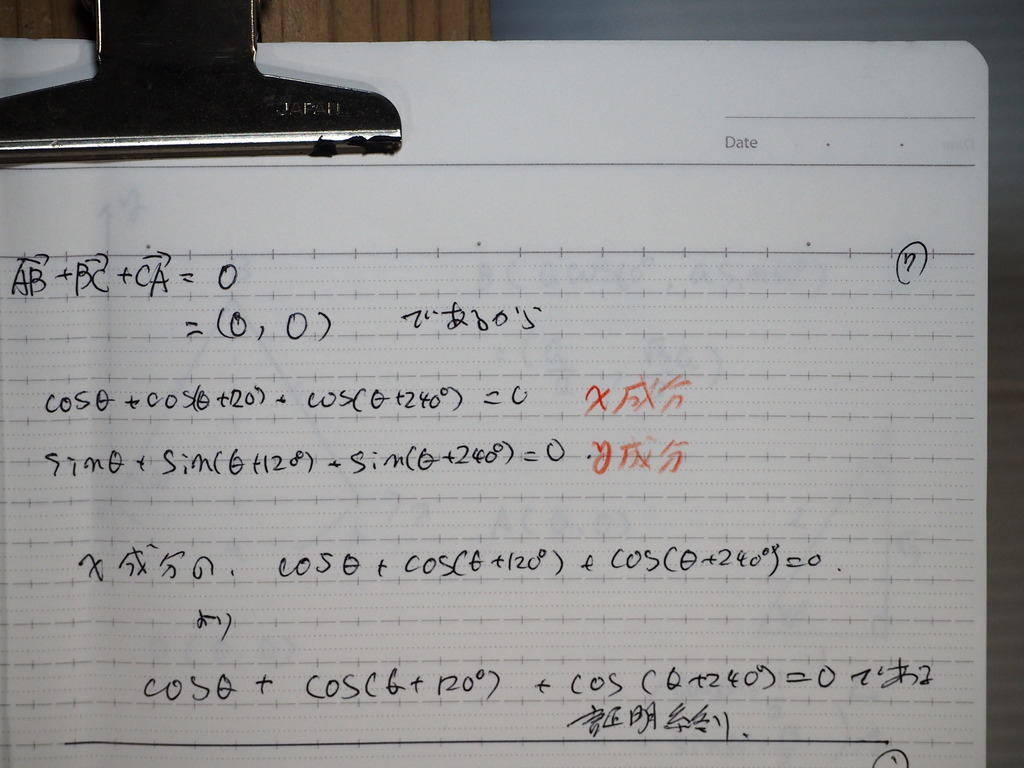 JAPAN
Date
(7)
AB + BC + CA = 0
= (0, 0) であるから
cosθ + cos(θ+120) + cos(θ+240°) = 0 x成分
sinθ + sin(θ+120) + sin(θ+240°) = 0 . y成分
x成分の. cosθ + cos(θ+120°) + cos(θ+240°) = 0 .
より
cosθ + cos(θ+120°) + cos(θ+240°) = 0 である
証明終り.